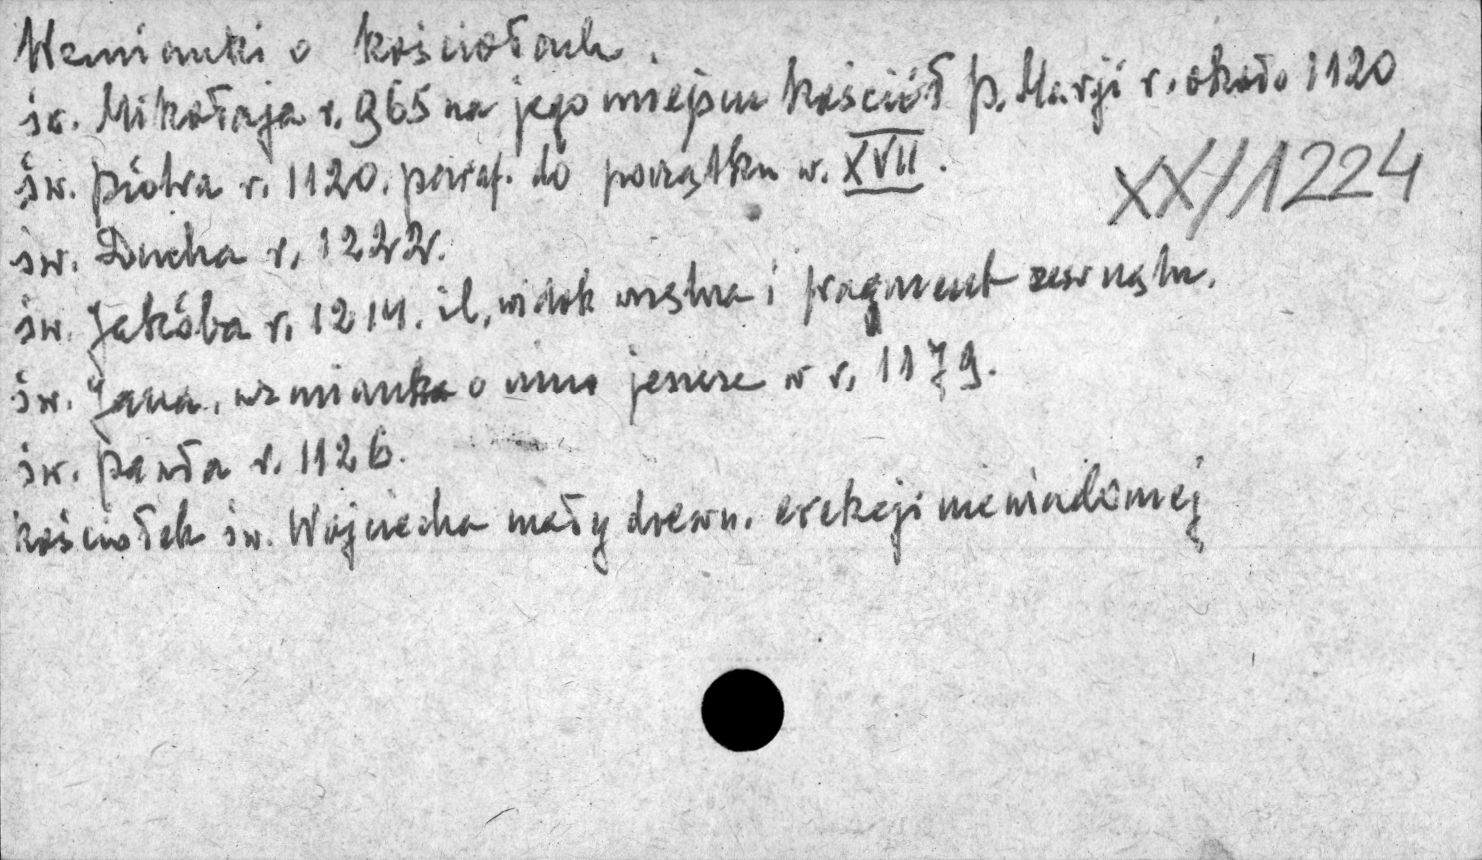 Wzmianki o kościołach.
św. Mikołaja r. 965 na jego miejscu kościół p. Marji r. około 1120
św. piotra r. 1120. paraf. do początku w. XVII.
XX/1224
św. Ducha r. 1222.
św. Jakóba r. 1214. il. widok wnętrza i fragment zewnątrz.
św. Jana, wzmianka o nim jeszcze w r. 1179.
św. pawła r. 1126.
kościołek św. Wojciecha mały drewn. erekcji niewiadomej